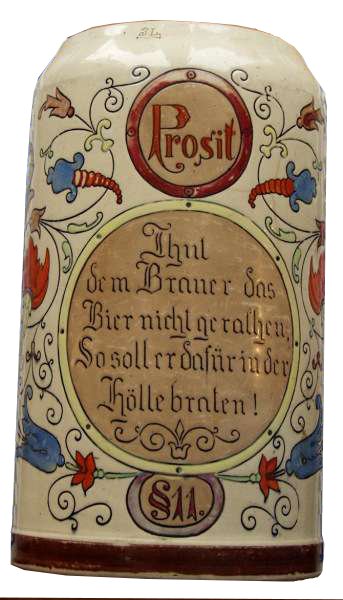 3L
Prosit
Thut
dem Brauer das
Bier nicht gerathen,
So soll er dafür in der
Hölle braten!
§11.